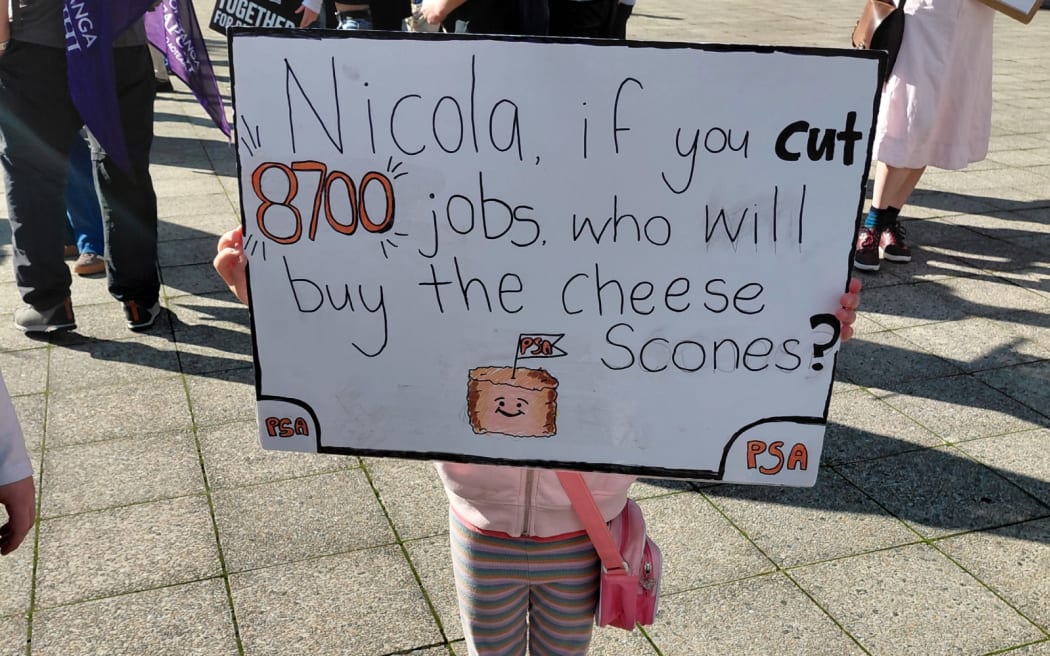 TOGETHER
FOR
Nicola, if you cut
8700 jobs, who will
buy the cheese
Scones?
PSA
PSA
PSA